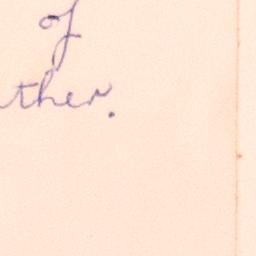 of
ther.